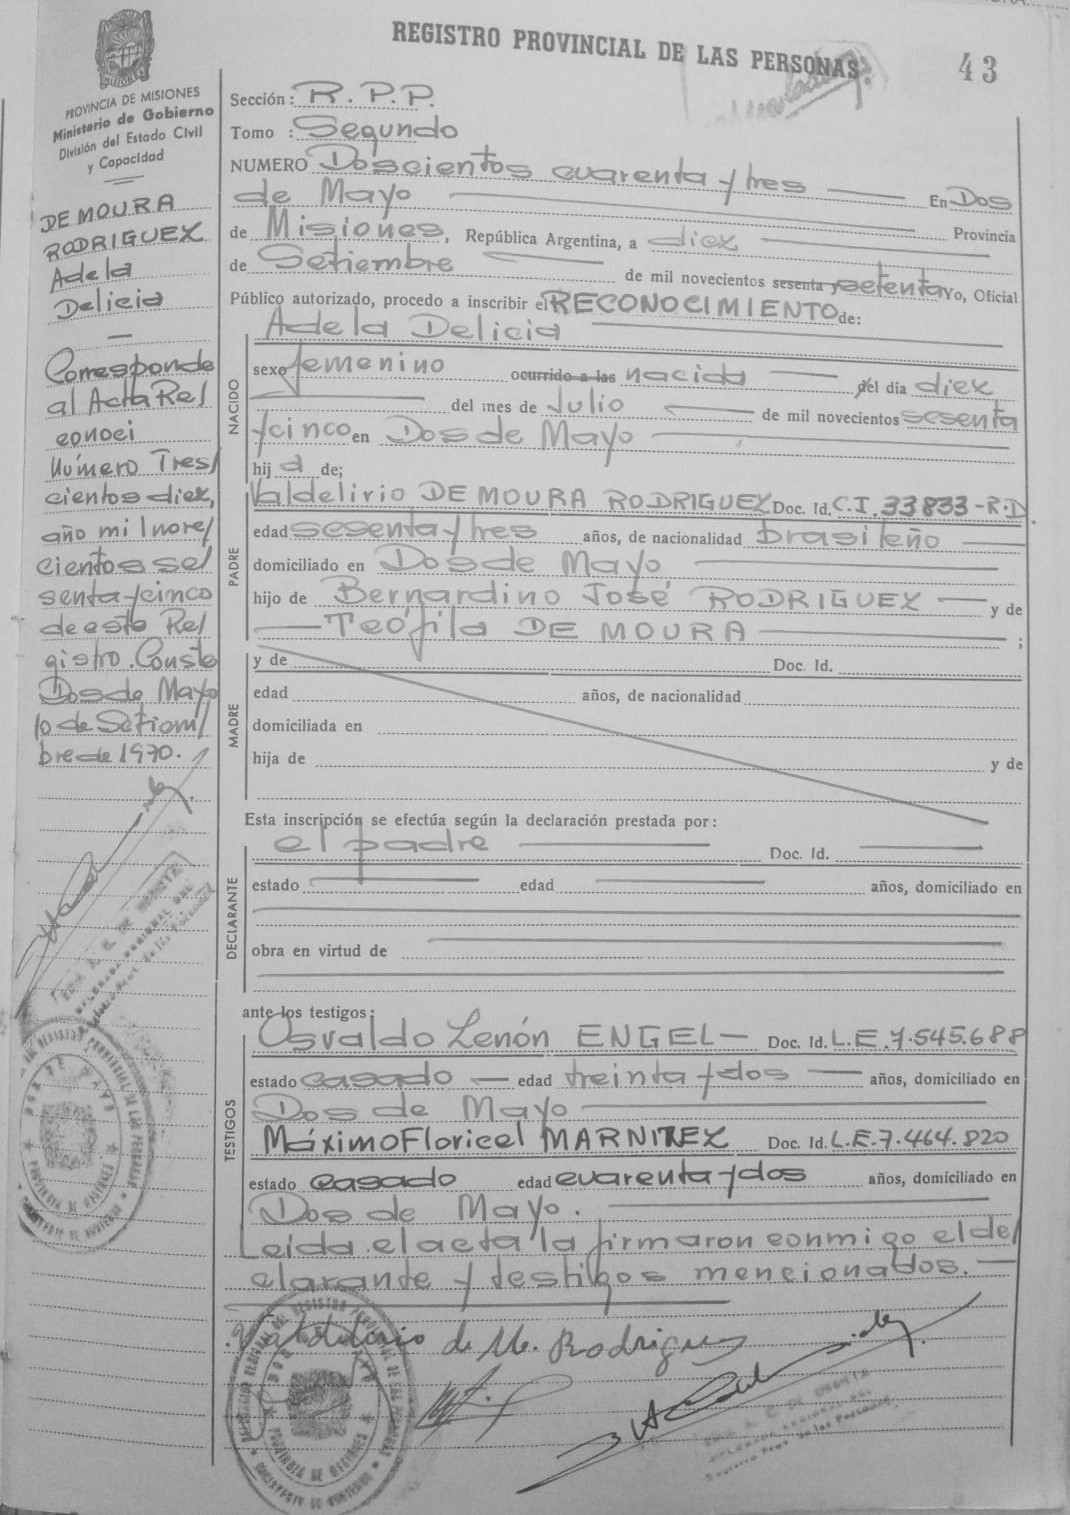 REGISTRO PROVINCIAL DE LAS PERSONAS
43
MISIONES
PROVINCIA DE MISIONES
Ministerio de Gobierno
División del Estado Civil
y Capacidad
DE MOURA
RODRIGUEZ
Adela
Delicia
Corresponde
al Acta Re/
conoci
Número Tres/
cientos diez,
año mil nove/
cientos se/
senta y cinco
de este Re/
gistro. Conste
Dos de Mayo
10 de Setiem/
bre de 1970.
Sección: R.P.P.
Tomo : Segundo
NUMERO Doscientos cuarenta y tres En Dos
de Mayo Provincia
de Misiones, República Argentina, a diez
de Setiembre de mil novecientos sesenta setenta Yo, Oficial
Público autorizado, procedo a inscribir el RECONOCIMIENTO de:
Adela Delicia
NACIDO
sexo femenino ocurrido a las nacida del día diez
del mes de Julio de mil novecientos sesenta
y cinco en Dos de Mayo
hij a de;
PADRE
Valdelirio DE MOURA RODRIGUEZ Doc. Id. C.I. 33833-R.D.
edad sesenta y tres años, de nacionalidad brasileño
domiciliado en Dos de Mayo
hijo de Bernardino José RODRIGUEZ y de
Teófila DE MOURA ;
MADRE
y de Doc. Id.
edad años, de nacionalidad
domiciliada en
hija de y de
Esta inscripción se efectúa según la declaración prestada por:
el padre Doc. Id.
DECLARANTE
estado edad años, domiciliado en
obra en virtud de
ante los testigos:
TESTIGOS
Osvaldo Lenón ENGEL Doc. Id. L.E. 7.545.688
estado casado edad treinta y dos años, domiciliado en
Dos de Mayo
Máximo Floricel MARNITEZ Doc. Id. L.E. 7.464.820
estado casado edad cuarenta y dos años, domiciliado en
Dos de Mayo.
Leída el acta la firmaron conmigo el de/
clarante y testigos mencionados.
Valdelirio de M. Rodrigues